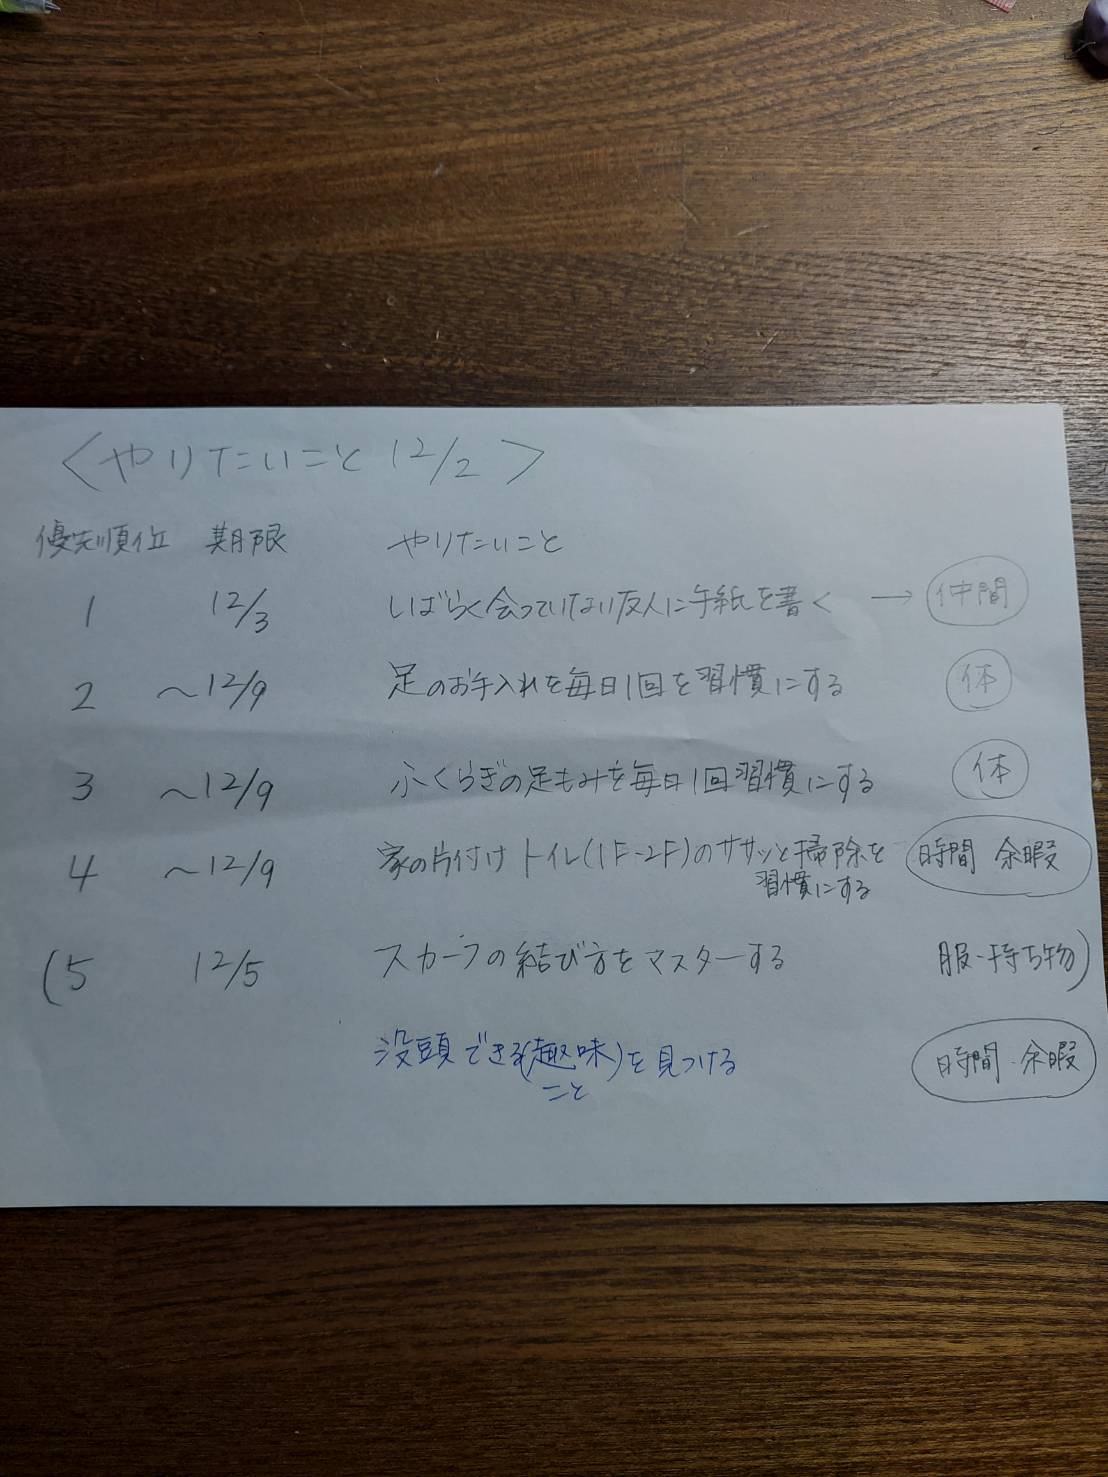 〈やりたいこと 12/2〉
優先順位 期限 やりたいこと
1 12/3 しばらく会っていない友人に手紙を書く → 仲間
2 〜12/9 足のお手入れを毎日1回を習慣にする 体
3 〜12/9 ふくらぎの足もみを毎日1回習慣にする 体
4 〜12/9 家の片付けトイレ(1F-2F)のササッと掃除を 時間 余暇
習慣にする
(5 12/5 スカーフの結び方をマスターする 服・持ち物)
没頭できる(趣味)を見つける 時間・余暇
こと